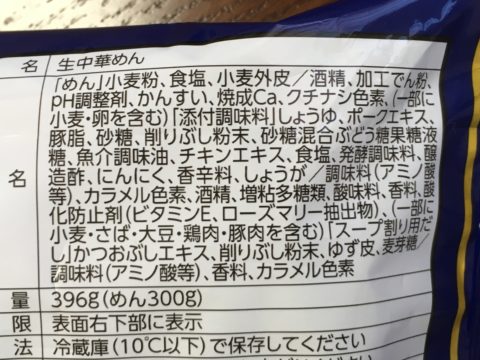 名 生中華めん
「めん」小麦粉、食塩、小麦外皮／酒精、加工でん粉、
pH調整剤、かんすい、焼成Ca、クチナシ色素、(一部に
小麦・卵を含む)「添付調味料」しょうゆ、ポークエキス、
豚脂、砂糖、削りぶし粉末、砂糖混合ぶどう糖果糖液
糖、魚介調味油、チキンエキス、食塩、発酵調味料、醸
名 造酢、にんにく、香辛料、しょうが／調味料(アミノ酸
等)、カラメル色素、酒精、増粘多糖類、酸味料、香料、酸
化防止剤(ビタミンE、ローズマリー抽出物)、(一部に
小麦・さば・大豆・鶏肉・豚肉を含む)「スープ割り用だ
し」かつおぶしエキス、削りぶし粉末、ゆず皮、麦芽糖／
調味料(アミノ酸等)、香料、カラメル色素
量 396g(めん300g)
限 表面右下部に表示
法 冷蔵庫(10℃以下)で保存してください